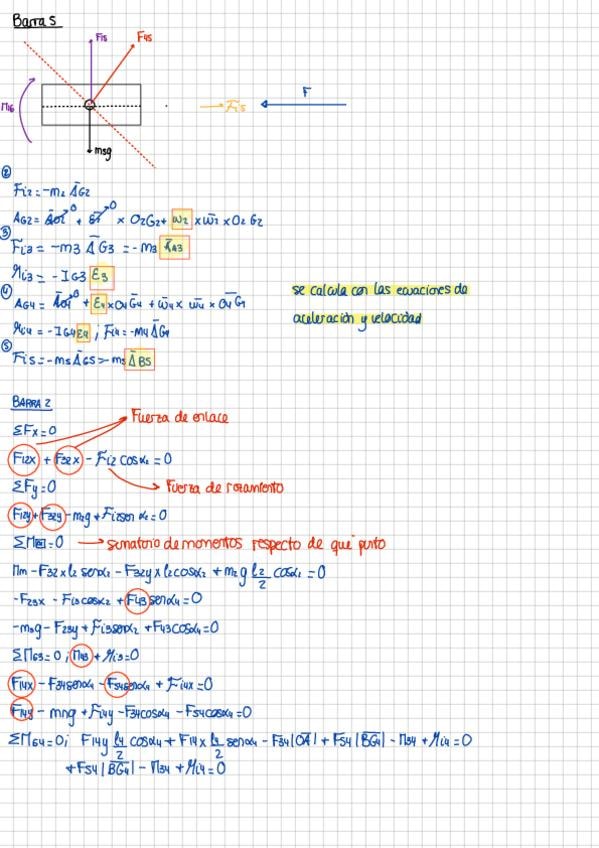 Barra 5
F15
F45
M16
Fi5
F
m5g
②
Fi2 = -m2 ĀG2
AG2 = Ā02 0 + ε̄2 0 × O2G2 + ω̄2 × ω̄2 × O2G2
③
Fi3 = -m3 ĀG3 = -m3 ĀA3
Mi3 = -IG3 ε3
④
AG4 = Ā04 0 + ε4 × O4G4 + ω̄4 × ω̄4 × O4G4
Mi4 = -IG4 ε4 ; Fi4 = -m4 ĀG4
se calcula con las ecuaciones de
aceleración y velocidad
⑤
Fi5 = -m5 ĀG5 = -m5 ĀB5
BARRA 2
Fuerza de enlace
ΣFx = 0
F12x + F32x - Fi2 cosα2 = 0
ΣFy = 0
Fuerza de rozamiento
F12y + F32y - m2g + Fi2 senα2 = 0
ΣM = 0 → sumatorio de momentos respecto de que punto
Mm - F32x l2 senα2 - F32y l2 cosα2 + m2g l2/2 cosα2 = 0
-F23x - Fi3 cosα2 + F43 senα4 = 0
-m3g - F23y + Fi3 senα2 + F43 cosα4 = 0
ΣMG3 = 0 ; M43 + Mi3 = 0
F14x - F34 senα4 - F54 senα4 + Fi4x = 0
F14y - m4g + Fi4y - F34 cosα4 - F54 cosα4 = 0
ΣMG4 = 0; F14y l4/2 cosα4 + F14x l4/2 senα4 - F34 |OA| + F54 |BG4| - M34 + Mi4 = 0
+ F54 |BG4| - M34 + Mi4 = 0